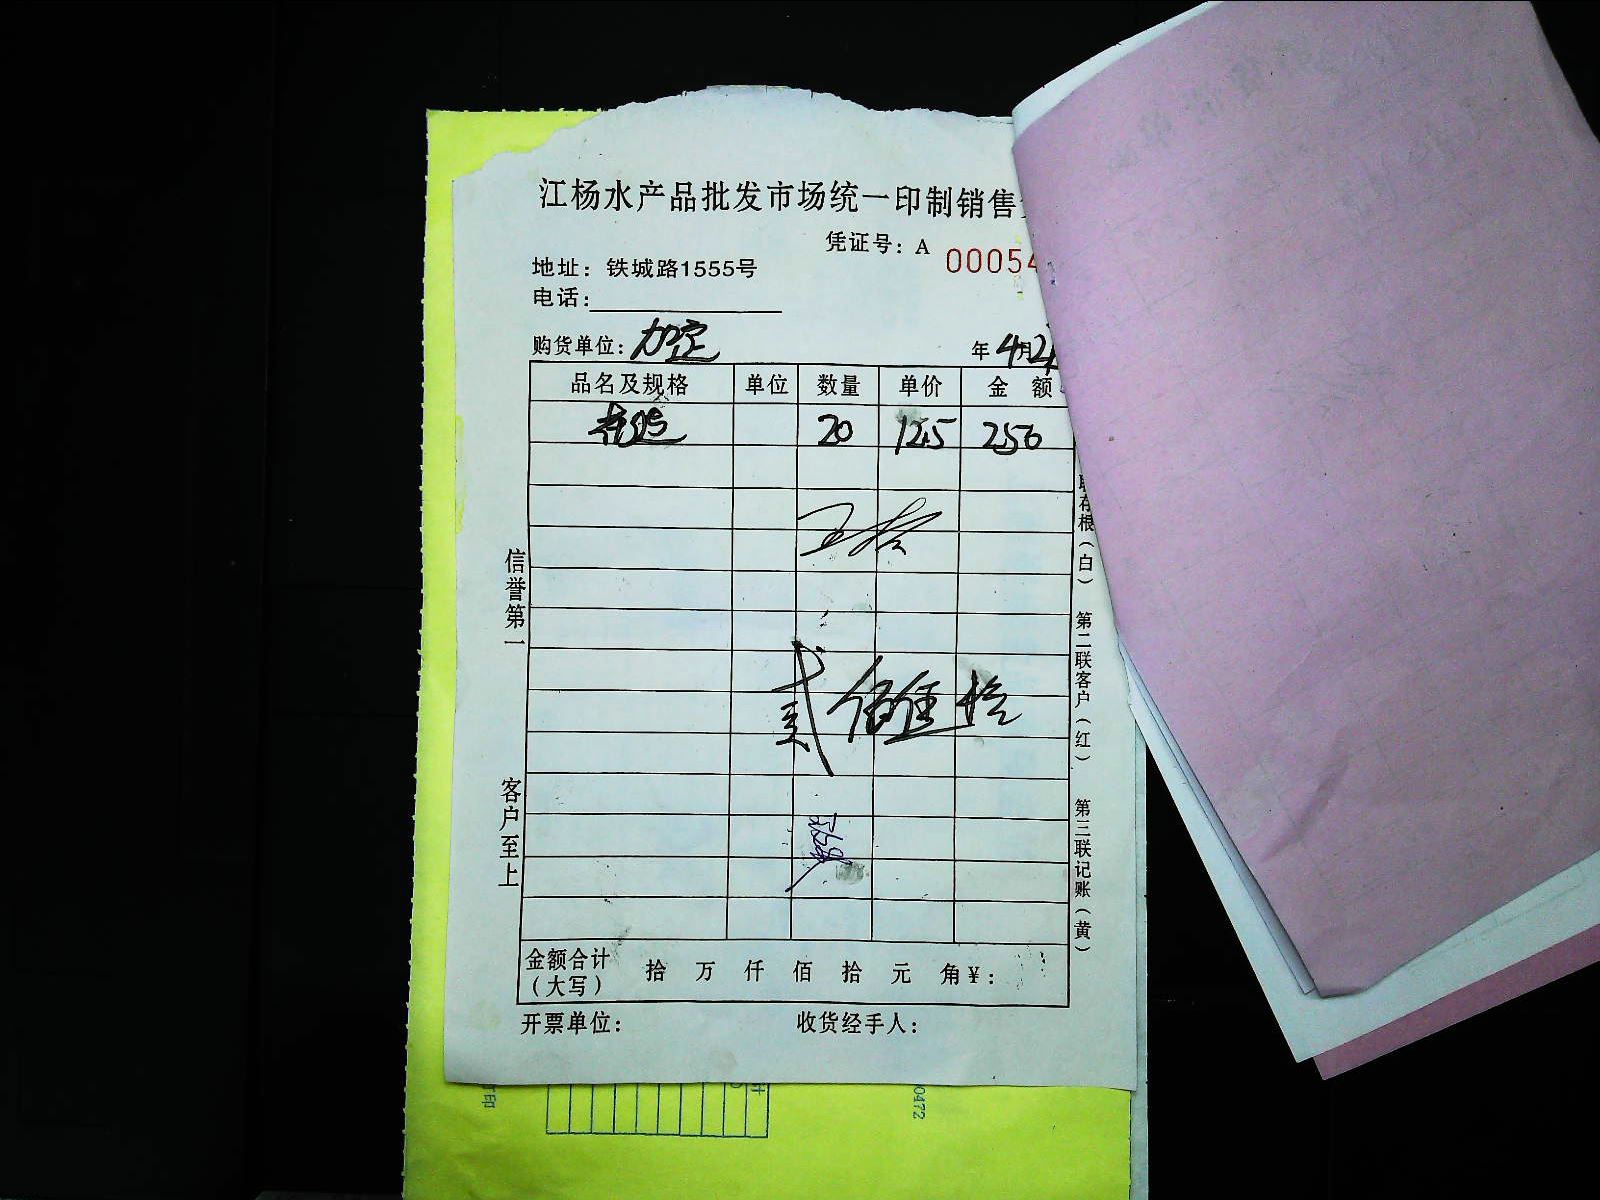 江杨水产品批发市场统一印制销售
凭证号：A 00054
地址：铁城路1555号
电话：
购货单位：加定 年4月2
品名及规格 单位 数量 单价 金 额
20 12.5 250
贰佰伍拾
信誉第一
客户至上
联存根（白） 第二联客户（红） 第三联记账（黄）
金额合计（大写） 拾 万 仟 佰 拾 元 角 ¥：
开票单位： 收货经手人：
印
计
00472